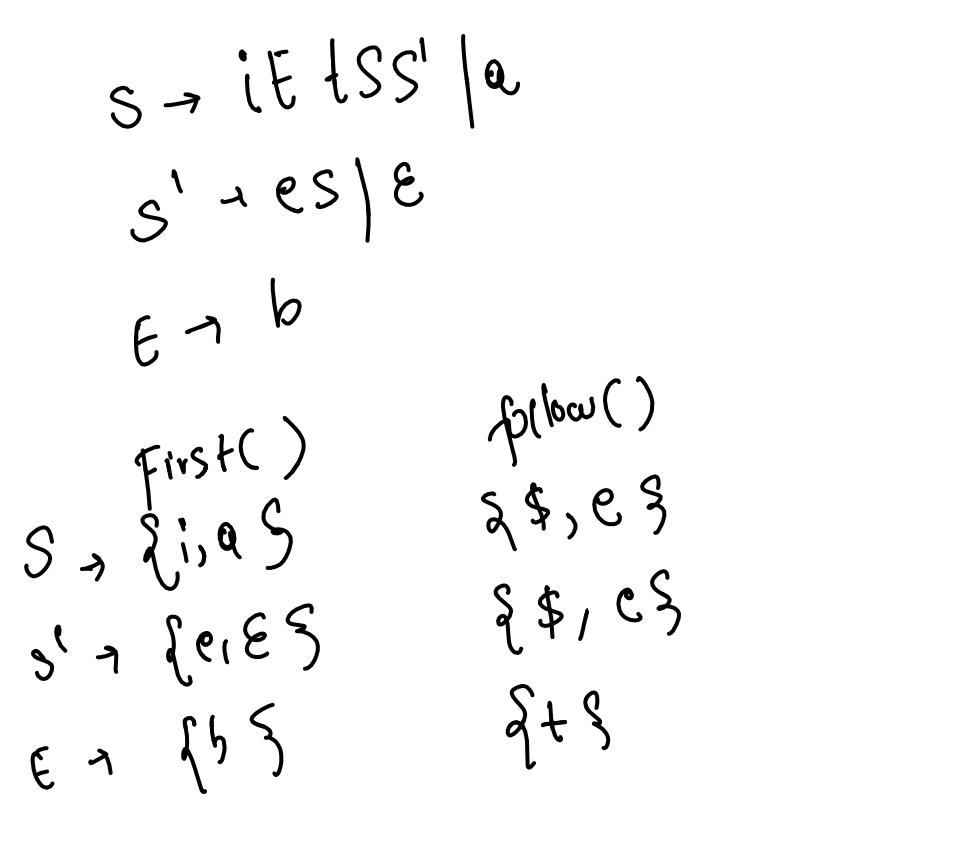 S → iEtSS' | a
S' → eS | ε
E → b
First() follow()
S → {i, a} {$, e}
S' → {e, ε} {$, e}
E → {b} {t}